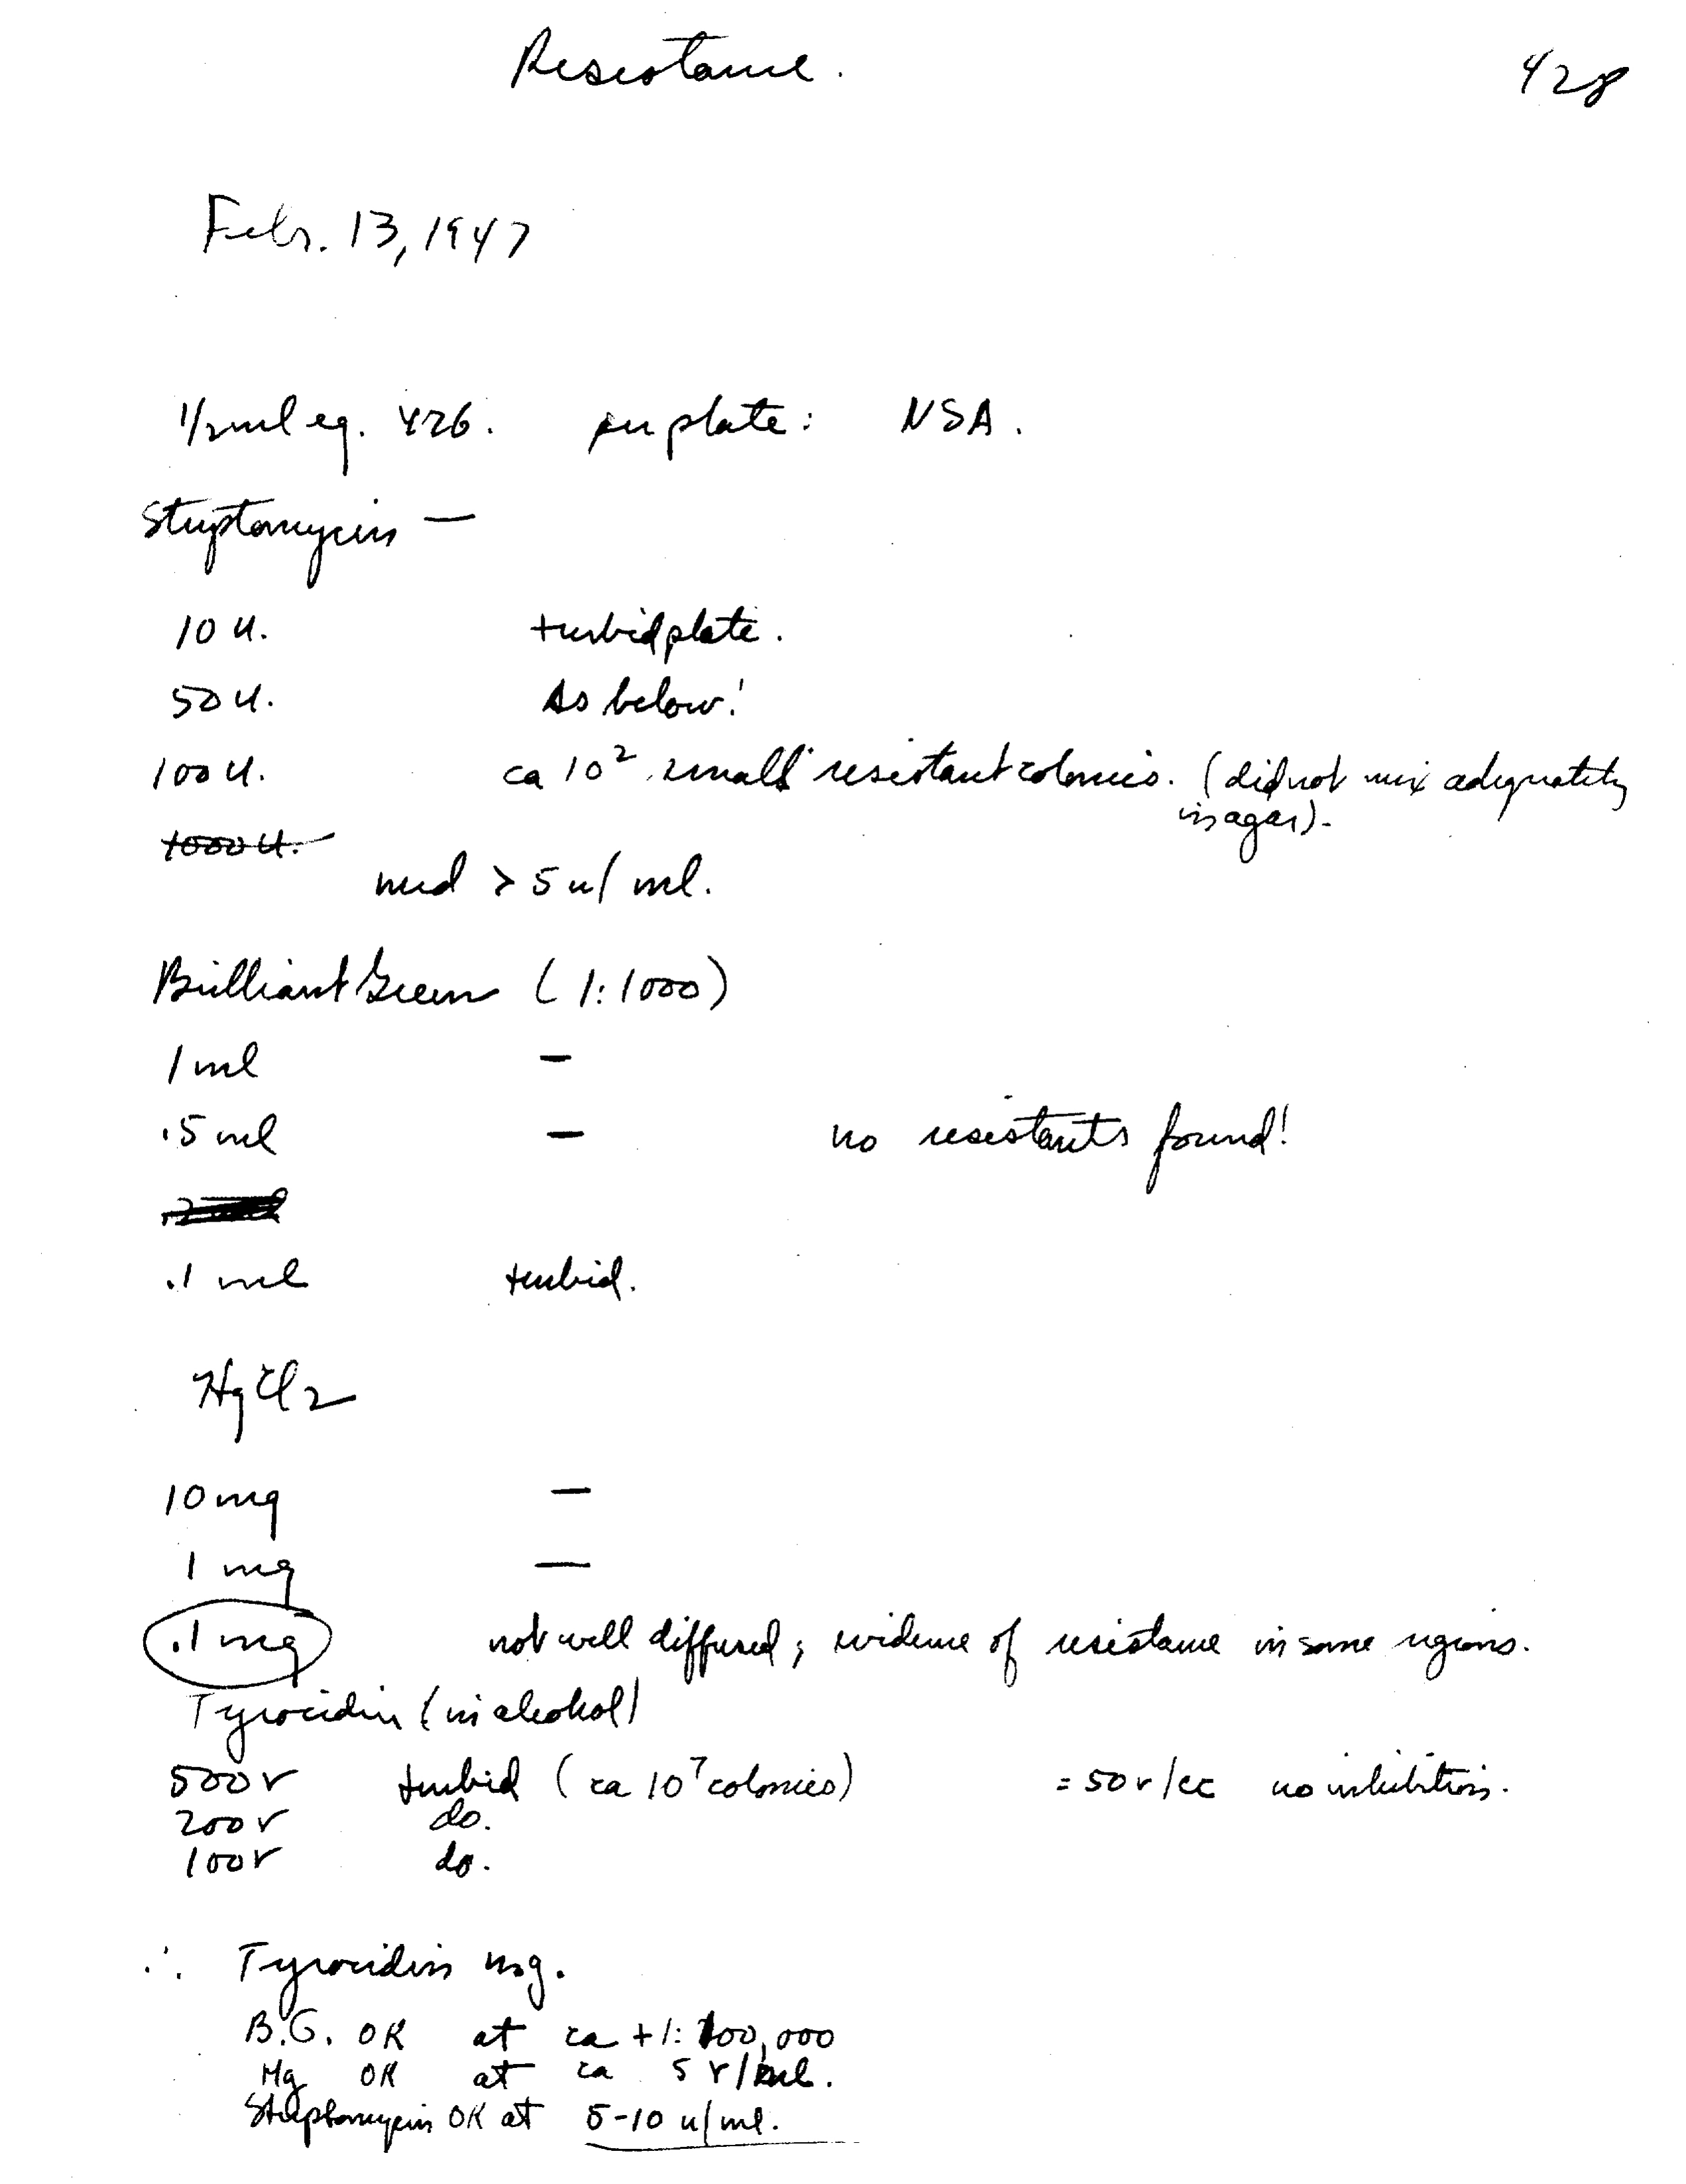 Resistance. 428
Febr. 13, 1947
1/2 ml eq. 426. per plate: NSA.
Streptomycin —
10 u. turbid plate.
50 u. As below!
100 u. ca 10² small resistant colonies. (did not mix adequately
in agar).
1000 u.
need > 5 u/ml.
Brilliant Green (1:1000)
1 ml —
.5 ml — no resistants found!
.1 ml turbid.
HgCl2
10 mg —
1 mg —
.1 mg not well diffused; evidence of resistance in some regions.
Tyrocidin (in alcohol)
500 r turbid (ca 10⁷ colonies) = 50 r/cc no inhibition.
200 r do.
100 r do.
∴ Tyrocidin
B.G. OK at ca + 1: 100,000
Hg OK at ca 5 r/ml.
Streptomycin OK at 5-10 u/ml.